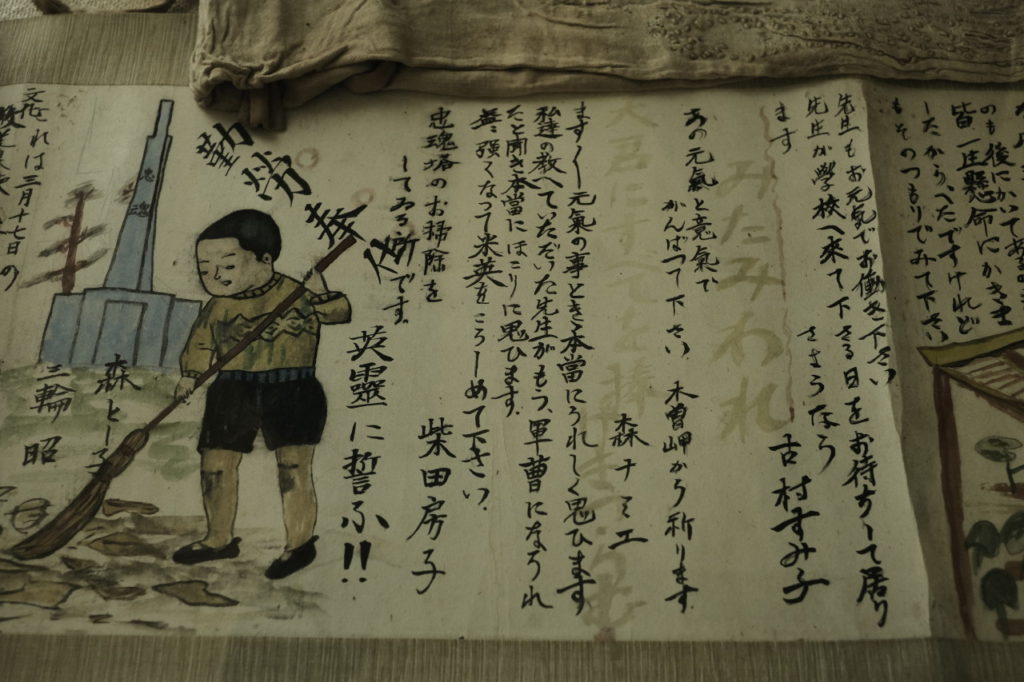 のも後にかいてある
皆一生懸命にかきま
したから、へたですけれど
もそのつもりでみて下さい
先生もお元気でお働き下さい
先生が学校へ来て下さる日をお待ちして居り
ます
さようなら
古村すみ子
みたみわれ
あの元氣と意氣で
がんばつて下さい
木曽岬から祈ります
森ナミエ
大君にすべてを捧
ます〱元氣の事とき本當にうれしく思ひます
私達の教へていたゞいた先生がもう軍曹になられ
たと聞き本當にほこりに思ひます。
無
強くなつて米英をころしめて下さい。
柴田房子
忠魂塔のお掃除を
してゐる所です。
英靈に誓ふ!!
勤労奉仕
忠魂
森とし子
三輪 昭
これは三月十七日の